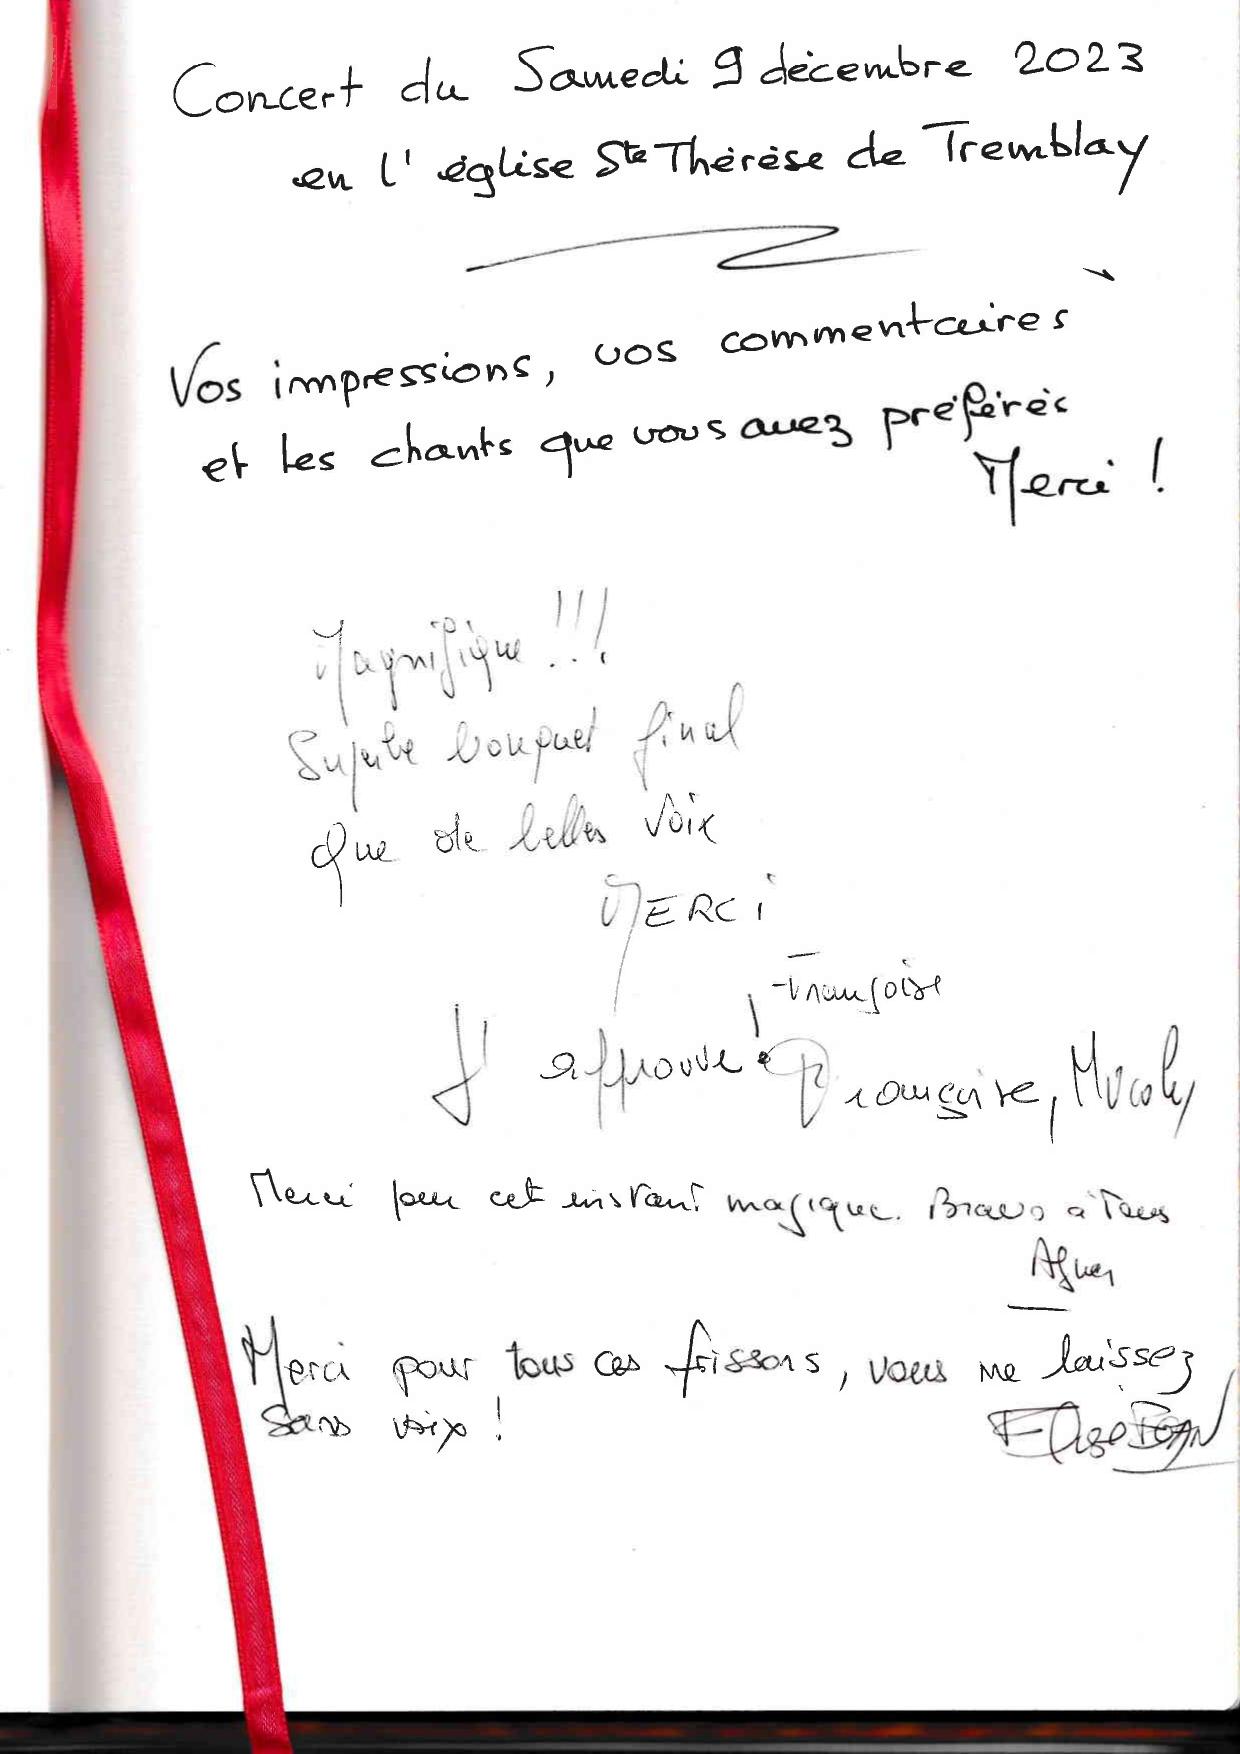 Concert du Samedi 9 décembre 2023
en l'église Ste Thérèse de Tremblay
Vos impressions, vos commentaires
et les chants que vous avez préférés
Merci !
Magnifique !!!
Superbe bouquet final
Que de belles voix
MERCI
Françoise
J'approuve !
Françoise,
Merci pour cet instant magique. Bravo à Tous
Agnes
Merci pour tous ces frissons, vous me laissez
sans voix !